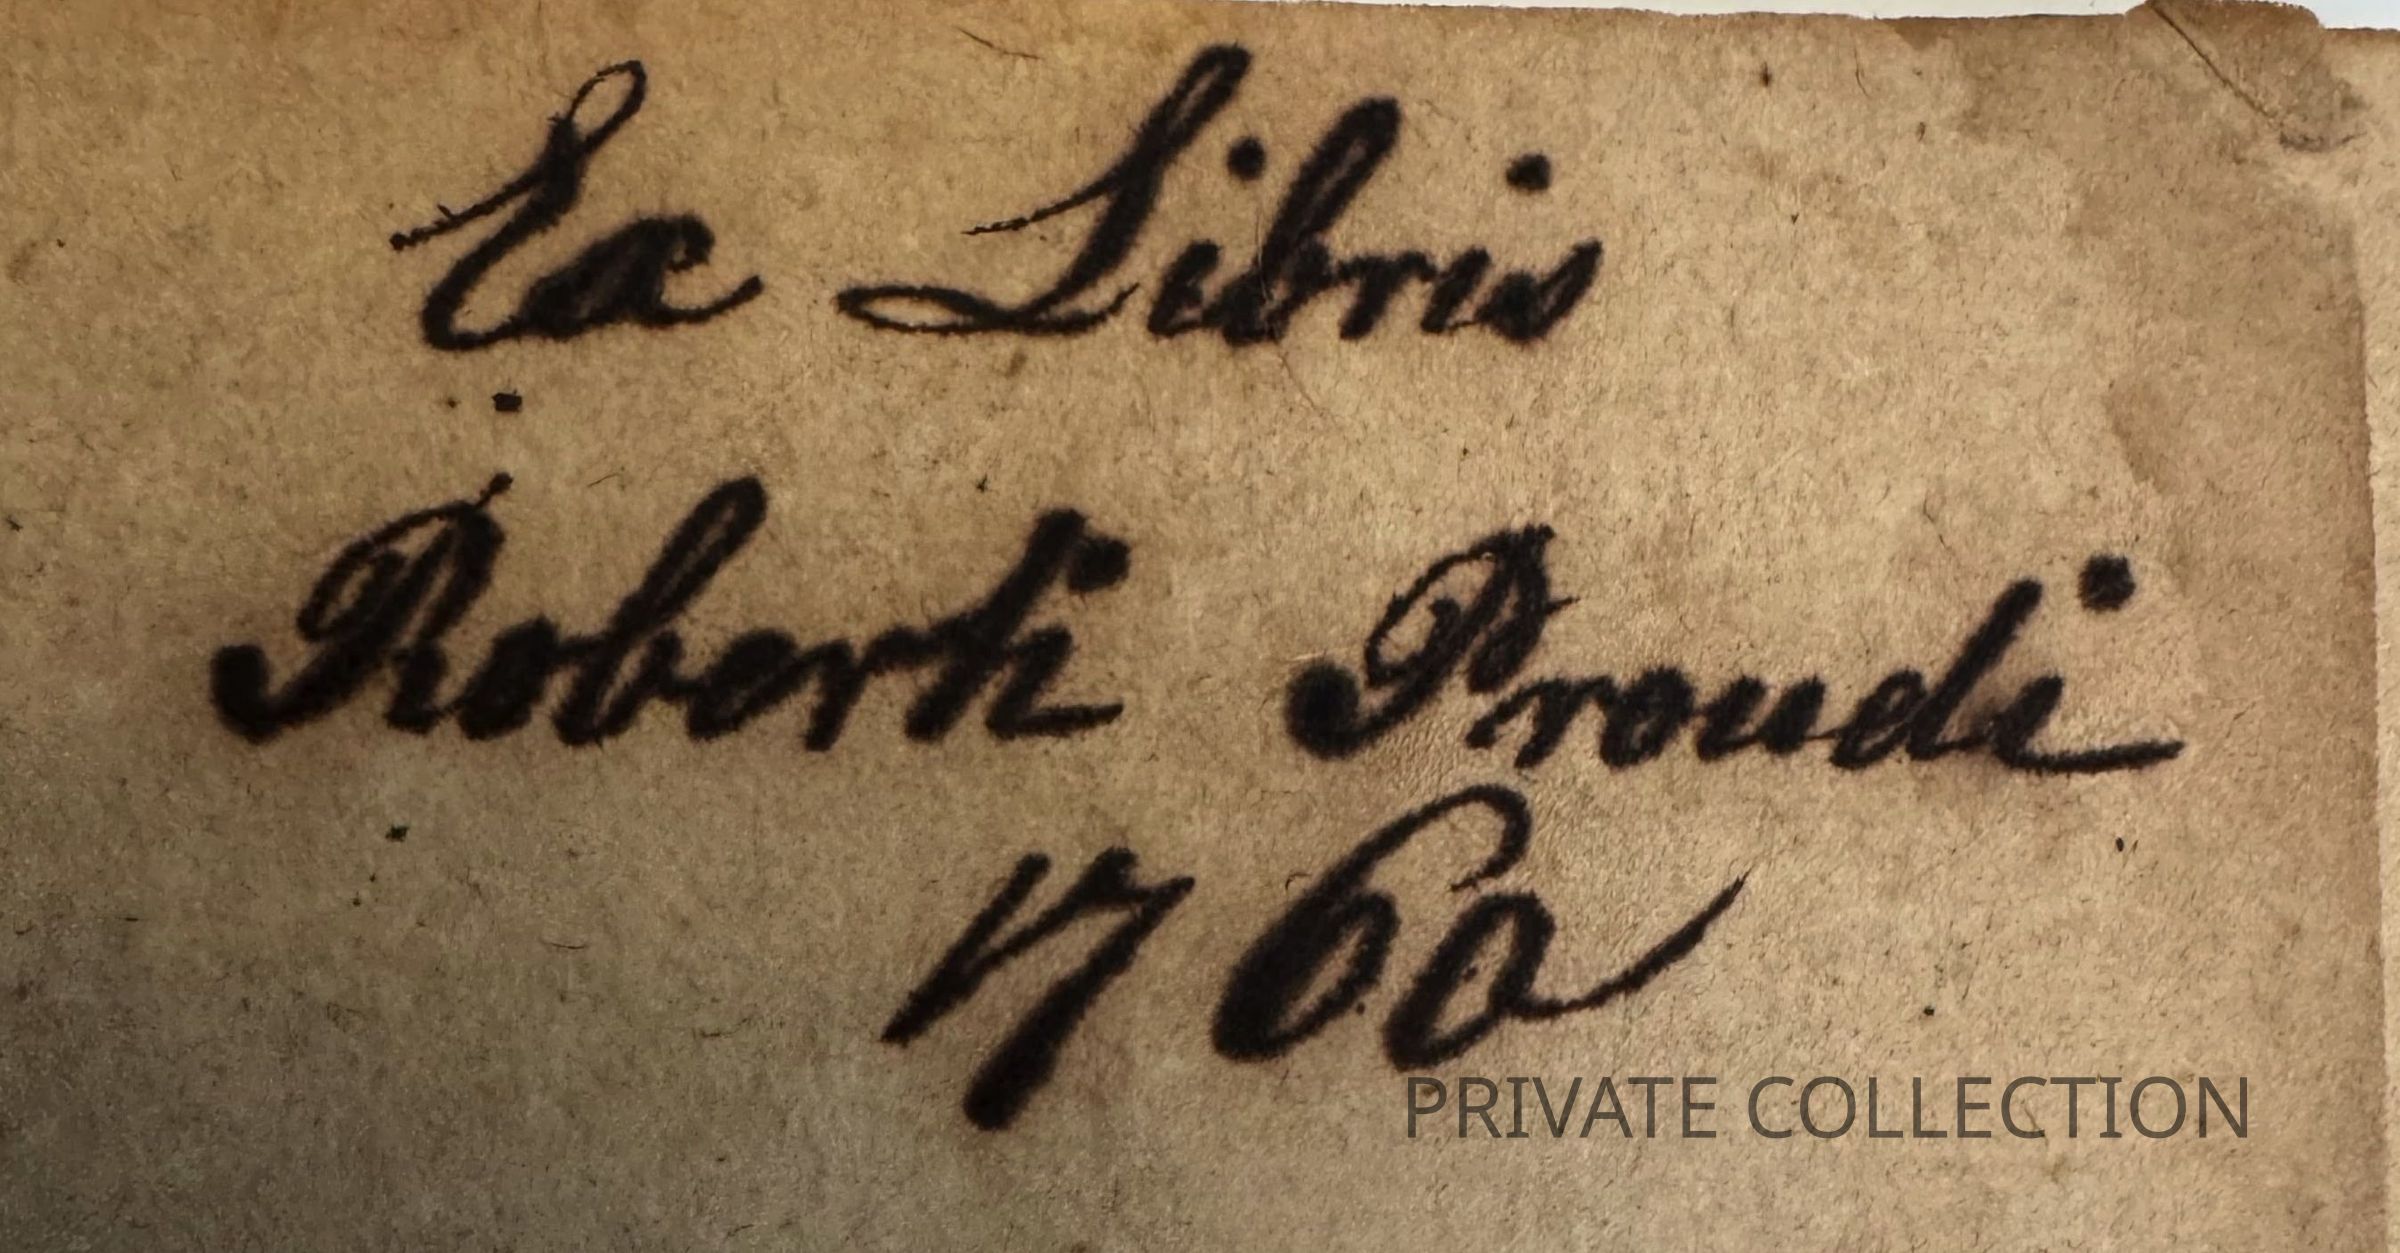 Ex Libris
Roberti Proudi
1760
PRIVATE COLLECTION